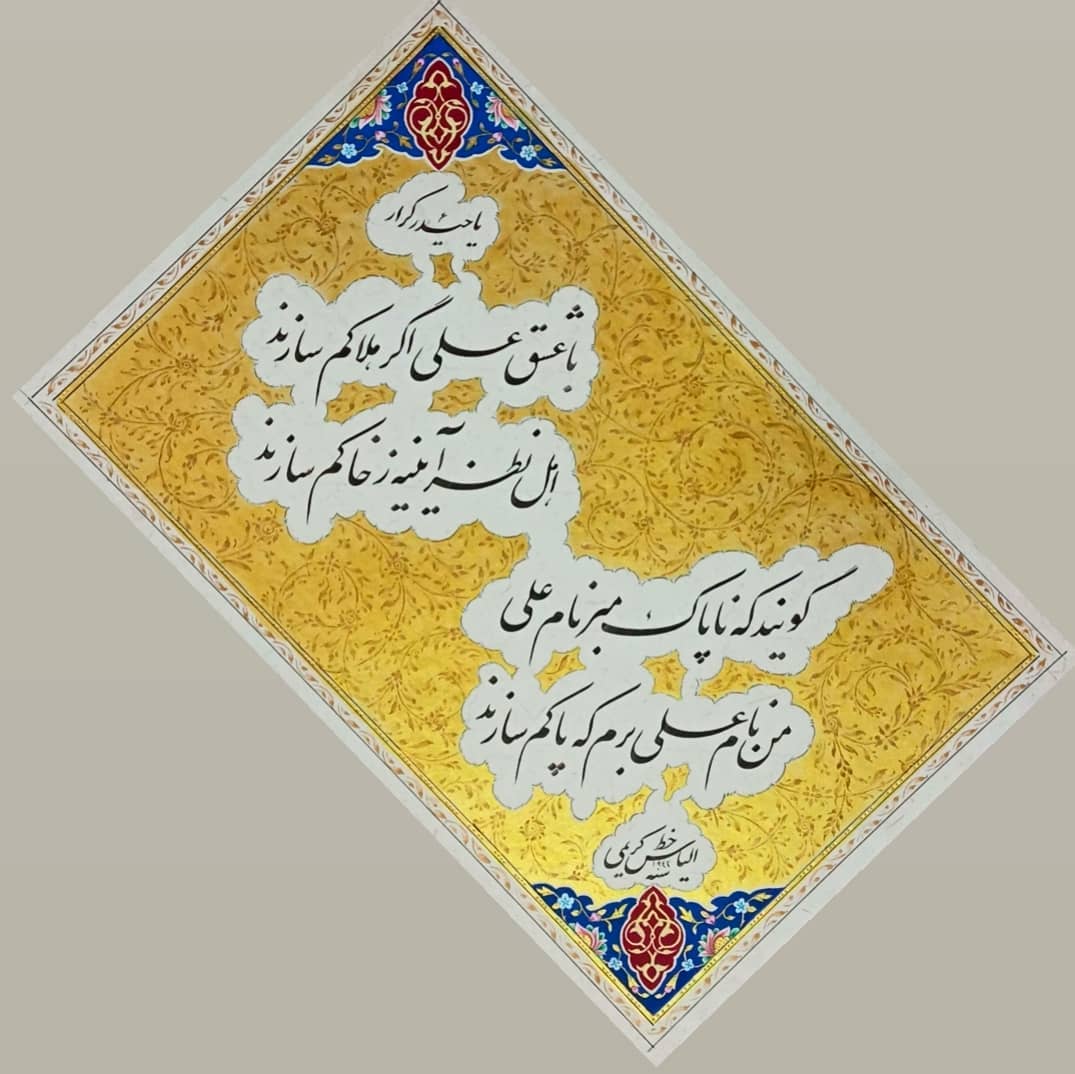 یا حیدر کرار
با عشق علی اگر هلاکم سازند
اهل نظر آیینه ز خاکم سازند
گویند که ناپاک مبر نام علی
من نام علی برم که پاکم سازند
خط الیاس کریمی
سنه